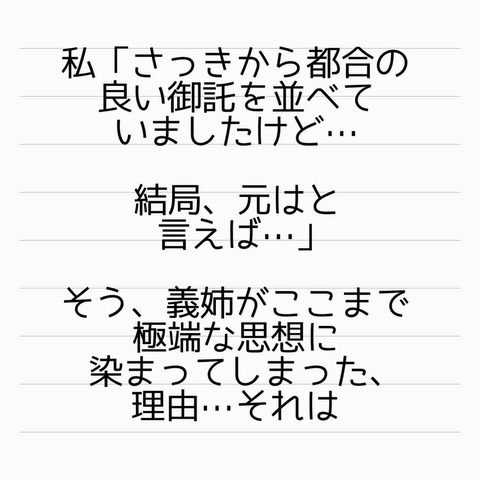 私「さっきから都合の
良い御託を並べて
いましたけど…
結局、元はと
言えば…」
そう、義姉がここまで
極端な思想に
染まってしまった、
理由…それは